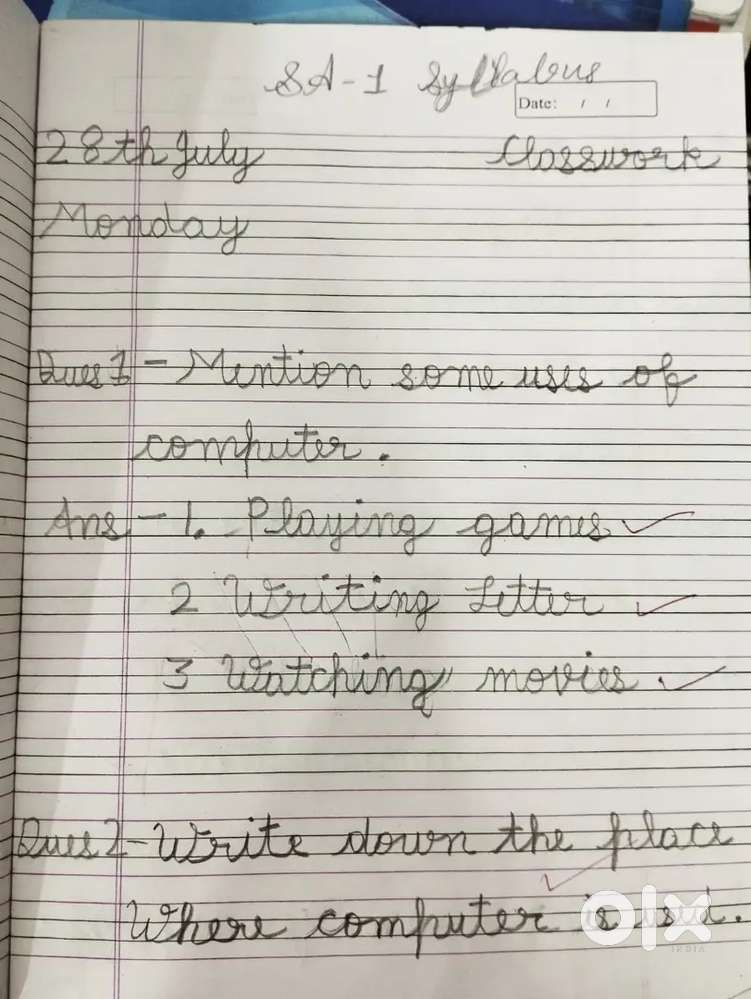 SA-1 Syllabus
Date: / /
28th July Classwork
Monday
Ques 1 - Mention some uses of
computer.
Ans - 1. Playing games
2 Writing Letter
3 Watching movies.
Ques 2 - Write down the place
Where computer is used.
olx
INDIA